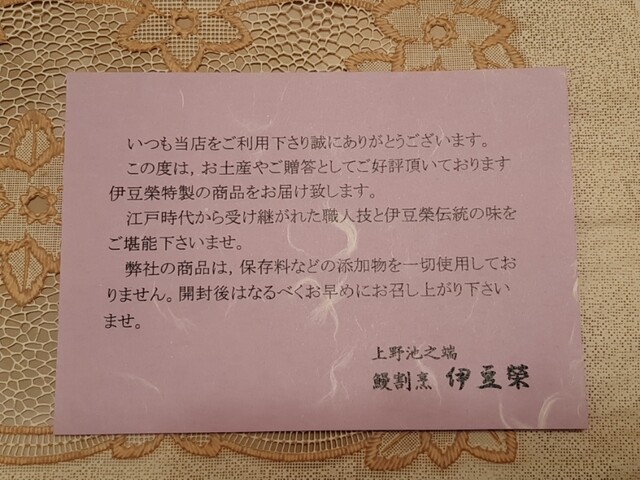 いつも当店をご利用下さり誠にありがとうございます。
この度は，お土産やご贈答としてご好評頂いております
伊豆榮特製の商品をお届け致します。
江戸時代から受け継がれた職人技と伊豆榮伝統の味を
ご堪能下さいませ。
弊社の商品は，保存料などの添加物を一切使用してお
りません。開封後はなるべくお早めにお召し上がり下さい
ませ。
上野池之端
鰻割烹 伊豆榮